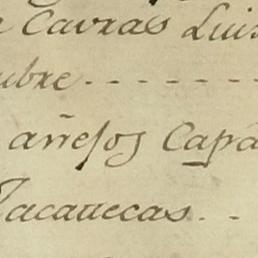 e Cavras Luis
ubre - - - - - -
añejos Capa
Zacatecas. - -